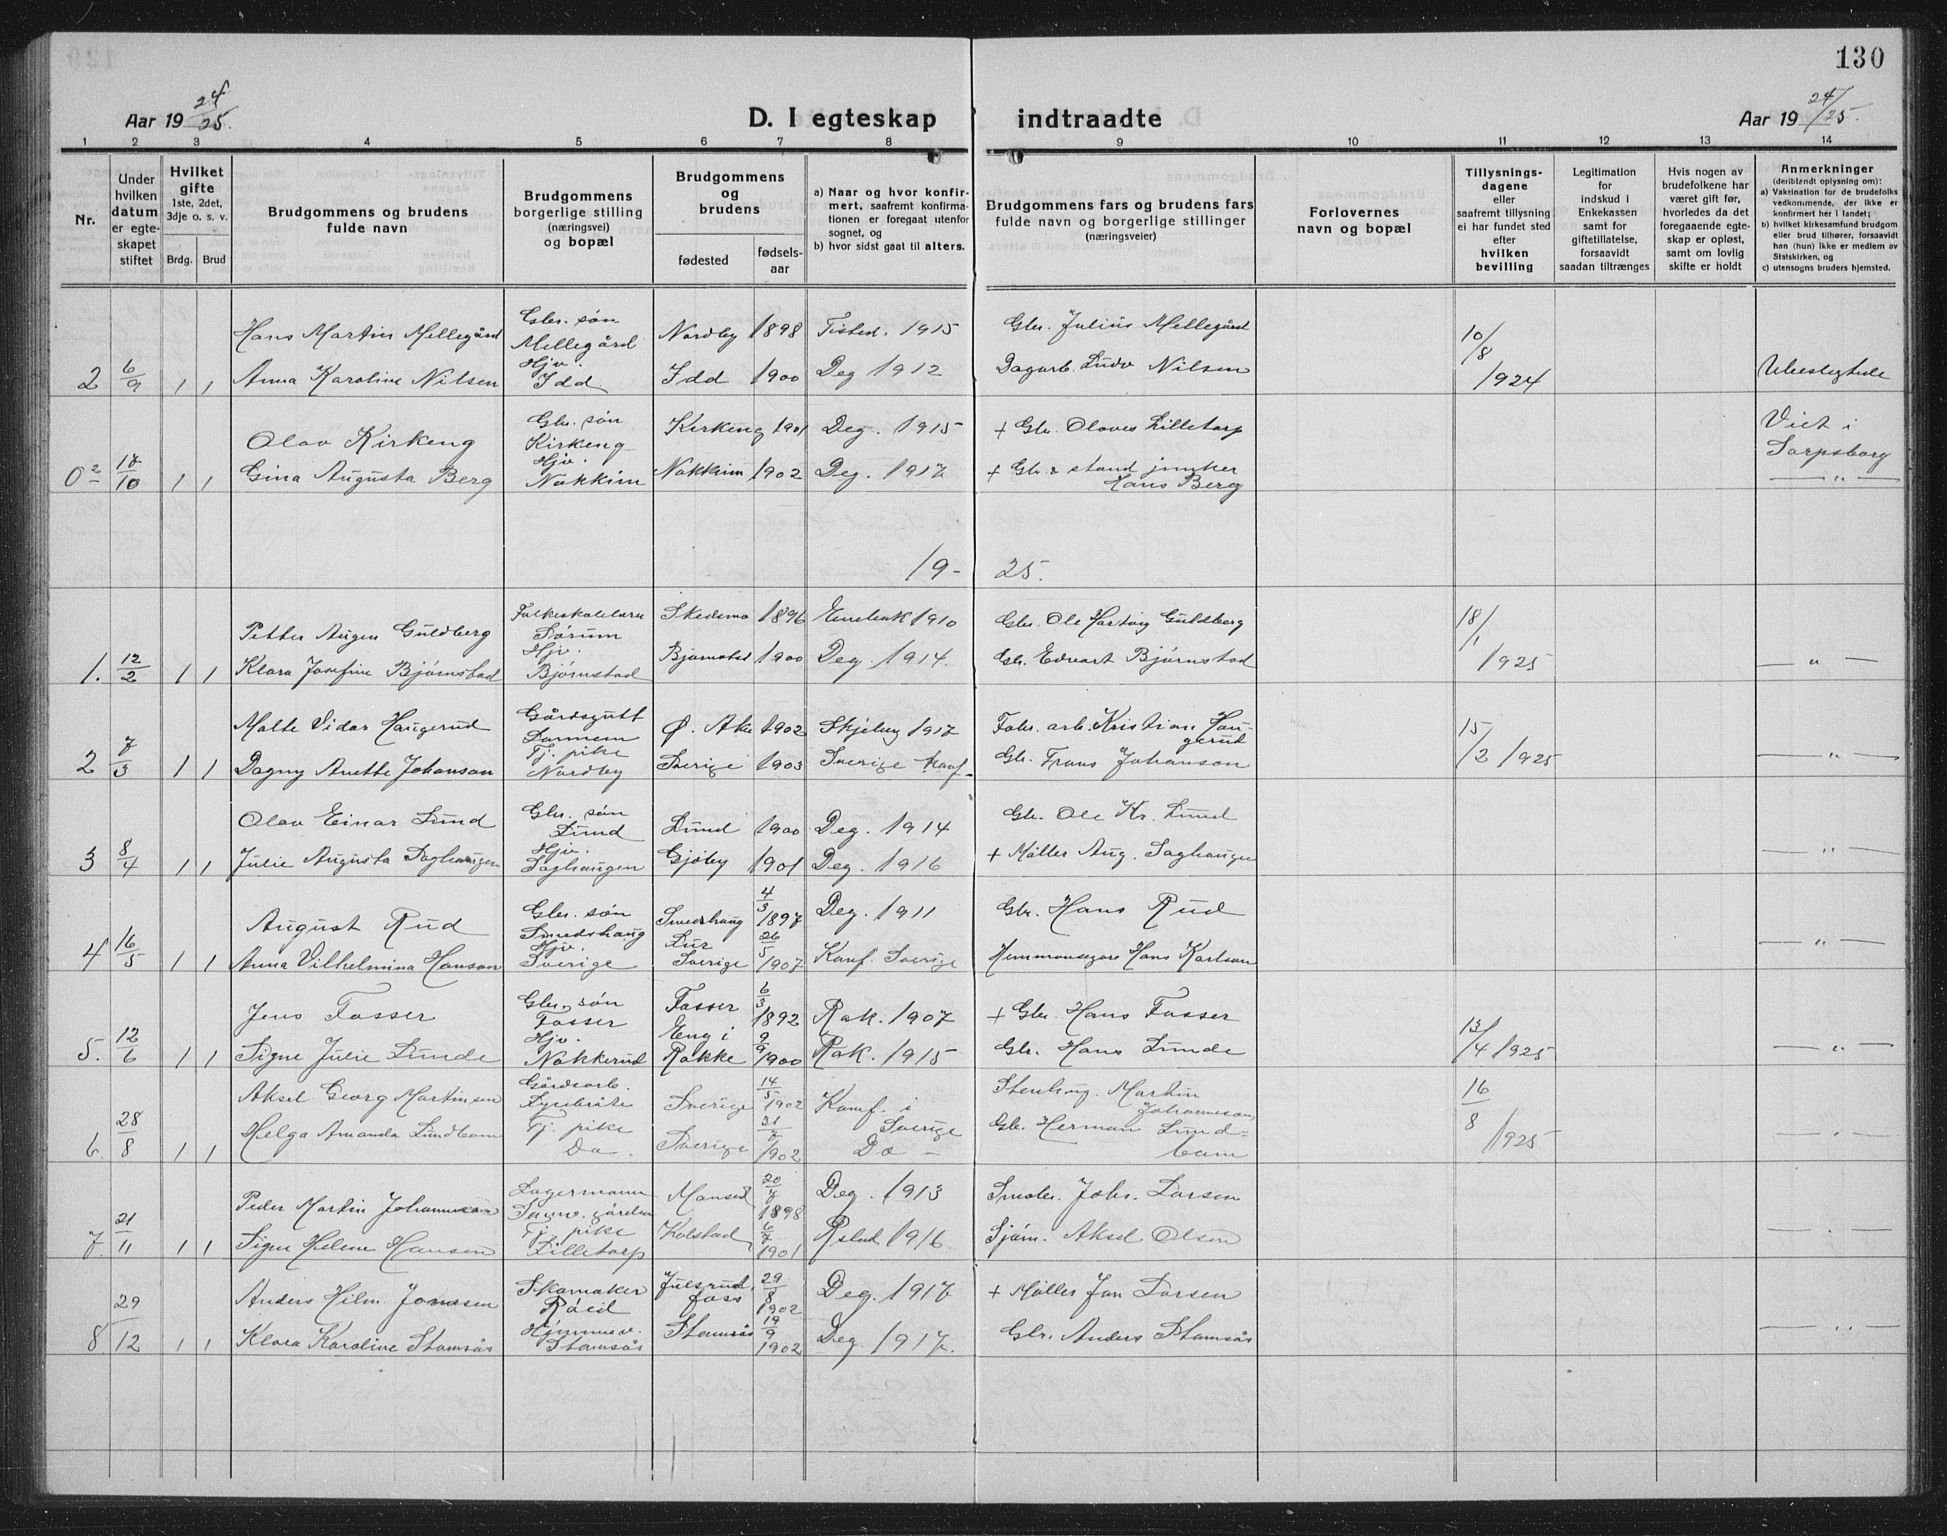 130
Aar 19 24/25.
D. I egteskap indtraadte
Aar 19 24/25.
1 2 3 4 5 6 7 8 9 10 11 12 13 14
Nr.
Under hvilken datum er egteskapet stiftet
Hvilket gifte 1ste, 2det, 3dje o. s. v.
Brdg. Brud
Brudgommens og brudens fulde navn
Brudgommens borgerlige stilling (næringsvei) og bopæl
Brudgommens og brudens
fødested
fødselsaar
a) Naar og hvor konfirmert, saafremt konfirmationen er foregaat utenfor sognet, og
b) hvor sidst gaat til alters.
Brudgommens fars og brudens fars fulde navn og borgerlige stillinger (næringsveier)
Forlovernes navn og bopæl
Tillysningsdagene eller saafremt tillysning ei har fundet sted efter hvilken bevilling
Legitimation for indskud i Enkekassen samt for giftetillatelse, forsaavidt saadan tiltrænges
Hvis nogen av brudefolkene har været gift før, hvorledes da det foregaaende egteskap er opløst, samt om lovlig skifte er holdt
Anmerkninger (deriblandt oplysning om):
a) Vaktination for de brudefolks vedkommende, der ikke er konfirmert her i landet;
b) hvilket kirkesamfund brudgom eller brud tilhører, forsaavidt han (hun) ikke er medlem av Statskirken, og
c) utensogns bruders hjemsted.
2 6/9 1 1
Hans Martin Mellegård Gbr. søn Mellegård Nordby 1898 Tisted. 1915 Gbr. Julius Mellegård 10/8 1924
Anna Karoline Nilsen Hjv. Idd Idd 1900 Deg 1912 Dagarb. Ludv Nilsen Ubeslegtede
0² 17/10 1 1
Olav Kirkeng Gbr. søn Kirkeng Kirkeng 1901 Deg. 1915 + Gbr. Olaves Lilletorp Viet i Sarpsborg
Gina Augusta Berg Hjv. Nokkim Nokkim 1902 Deg. 1917 + Gbr. & stand junker Hans Berg — " —
19-25.
1. 12/2 1 1
Petter Augen Guldberg Folkeskolelærer Sørum Skedsmo 1896 Enebak 1910 Gbr. Ole Hartvig Guldberg 18/1 1925
Klara Josefine Bjørnstad Hjv. Bjørnstad Bjørnstad 1900 Deg. 1914. Gbr. Edvart Bjørnstad — " —
2 7/3 1 1
Malte Vidar Haugerud Gårdsgutt Lannem Ø. Ake 1902 Skjeberg 1917 Fabr. arb. Kristian Haugerud 15/2 1925
Dagny Anette Johanson Tj. pike Nordby Sverige 1903 Sverige Konf. Gbr. Frans Johanson — " —
3 8/4 1 1
Olav Einar Lund Gbr. søn Lund Lund 1900 Deg. 1914 Gbr. Ole Kr. Lund
Julie Augusta Saghaugen Hjv. Saghaugen Gjøby 1901 Deg. 1916 + Møller Aug. Saghaugen — " —
4 16/5 1 1
August Rud Gbr. søn Smedshaug Smedshaug 4/3 1897 Deg. 1911 Gbr. Hans Rud
Anna Vilhelmina Hanson Hjv. Sverige Lur Sverige 26/5 1907 Konf. Sverige Hemmansegare Hans Karlson — " —
5. 12/6 1 1
Jens Fosser Gbr. søn Fosser Fosser 6/3 1892 Rak. 1907 + Gbr. Hans Fosser 13/4 1925
Signe Julie Lunde Hjv. Nokkerud Eng i Rakke 9/9 1900 Rak. 1915 Gbr. Hans Lunde — " —
6. 28/8 1 1
Aksel Georg Martinsen Gårdsarb. Lysebråte Sverige 14/5 1902 Konf. i Sverige Stenhug. Martin Johanneson 16/8 1925
Helga Amanda Lundbom Tj. pike Do. Sverige 31/7 1902 Do — Gbr. Herman Lundbom — " —
7. 21/11 1 1
Peder Martin Johannesen Lagermann 20/7 1898 Deg. 1913 Smabr. Johs. Larsen
Signe Helene Hansen Tj. pike Lilletorp Kolstad 6/7 1901 1916. Sjøm. Aksel Olsen
8 29/12 1 1
Anders Hilm. Jonassen Skomaker Julsrud foss 29/8 1902 Deg. 1917 + Møller Jan Larsen
Klara Karoline Stomsås Hjemmev. Stomsås Stomsås 19/9 1902 Deg 1917. Gbr. Anders Stomsås — " —